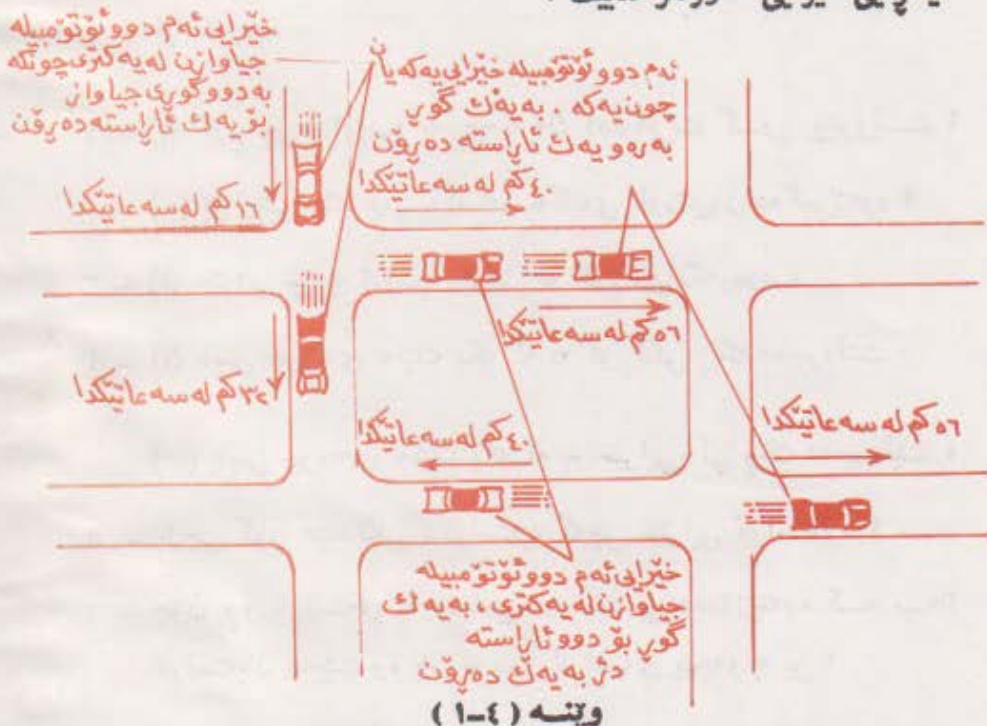 خێرایی ئەم دوو ئۆتۆمبیلە
جیاوازن لەیەکتری چونکە
بە دوو گوڕی جیاواز
بۆ یەک ئاڕاستە دەڕۆن
ئەم دوو ئۆتۆمبیلە خێرایی یەکەیان
چونیەکە ٠ بە یەک گوڕ
بەرەو یەک ئاڕاستە دەڕۆن
١٦ کم لە سەعاتێکدا
٤٠ کم لە سەعاتێکدا
٥٦ کم لە سەعاتێکدا
٣٢ کم لە سەعاتێکدا
٤٠ کم لە سەعاتێکدا
٥٦ کم لە سەعاتێکدا
خێرایی ئەم دوو ئۆتۆمبیلە
جیاوازن لەیەکتری ، بە یەک
گوڕ بۆ دوو ئاڕاستە
دژ بە یەک دەڕۆن
وێنــە ( ٤–١ )